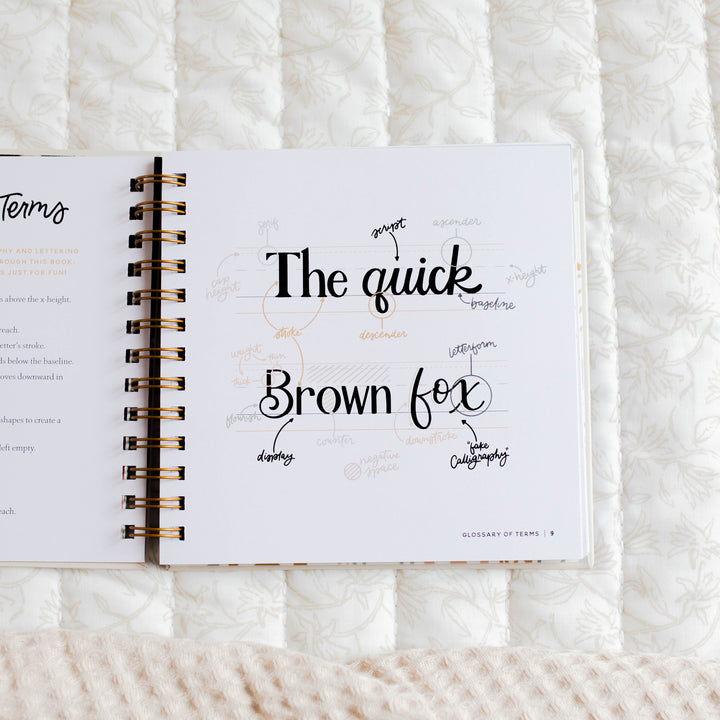 Terms
PHY AND LETTERING
ROUGH THIS BOOK.
S JUST FOR FUN!
s above the x-height.
reach.
etter's stroke.
ds below the baseline.
oves downward in
shapes to create a
left empty.
each.
serif
script
ascender
cap height
x-height
The quick
baseline
stroke
descender
weight
thin
thick
letterform
Brown fox
flourish
counter
downstroke
display
negative space
"fake Calligraphy"
GLOSSARY OF TERMS | 9